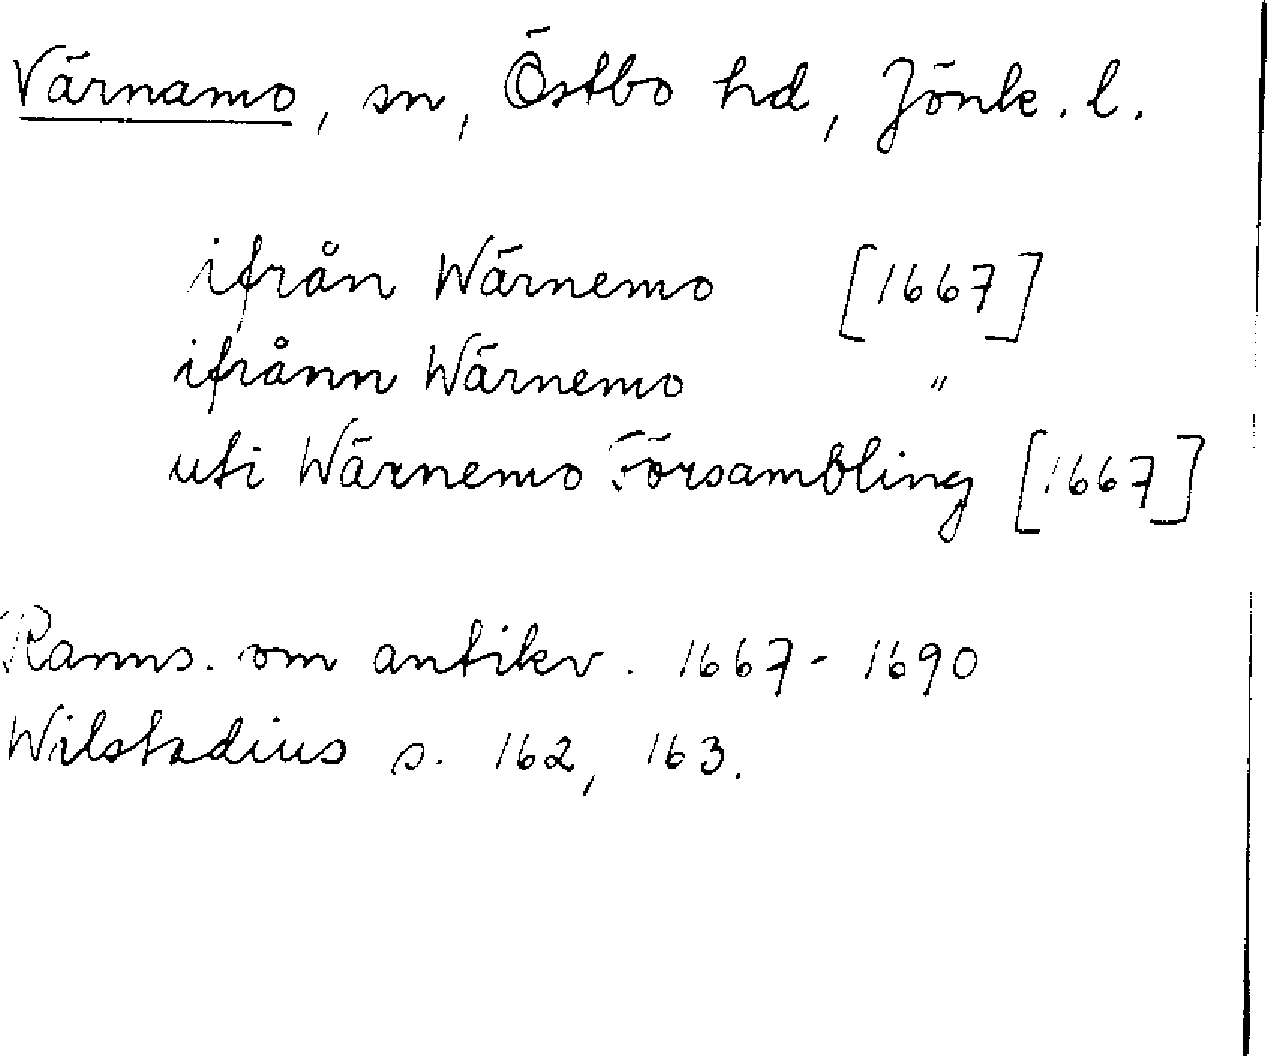 Värnamo, sn, Östbo hd, Jönk. l.
ifrån Wärnemo [1667]
ifrånn Wärnemo "
uti Wärnemo Försambling [1667]
Ranns. om antikv. 1667-1690
Wilstadius s. 162, 163.